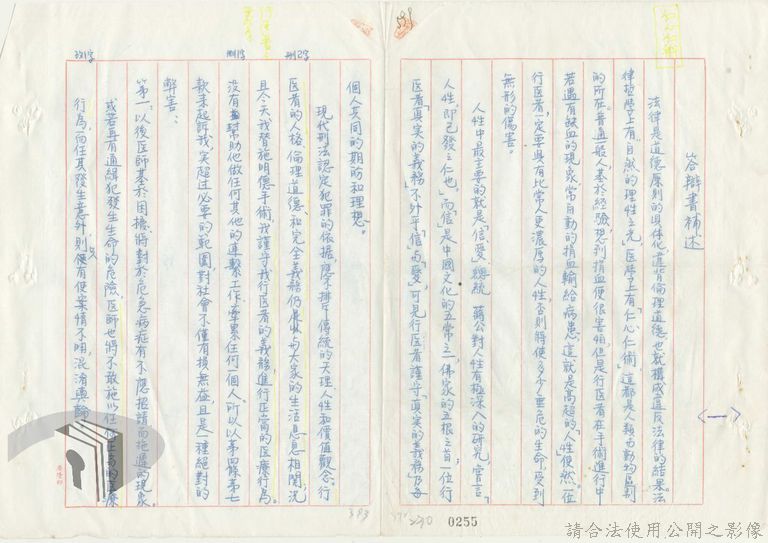 答辯書補述
法律是道德原則的具体化,違背倫理道德也就構成違反法律的結果。法
律哲學上有「自然的理性之光」,医學上有「仁心仁術」,這都是人類與動物區別
的所在。普通一般人,基於經驗,想到捐血便很害怕,但是行医者在手術進行中
若遇有缺血的現象,常自動的捐血輸給病患,這就是高超的「人性」使然。一位
行医者一定要具有比常人更濃厚的人性,否則將使多少人垂危的生命受到
無形的傷害。
人性中最主要的就是「信、愛」,總統 蔣公對人性有極深入的研究,嘗言「
人性,即己發之仁也」,而「信」是中國文化的五常之一,佛家的五根之首,一位行
医者「真实的義務」,不外乎「信」與「愛」,可是行医者謹守「真实的義務」乃每
個人共同的期盼和理想。
現代刑法認定犯罪的依据,應不排斥傳統的天理、人性和價值觀念。行
医者的人格、倫理道德、和完全義務仍應與大家的生活息息相関,況
且今天,我替施明德手術,我謹守我行医者的義務,進行正當的医療行為。
没有幫助他做任何其他的連繫工作,牽累任何一個人。所以以第四條第七
款来起訴我,实超过必要的範圍,對社會不僅有損無益,且是一種絕對的
弊害:
第一:以後医師基於困擾,將對於危急病症有不應報請而拖延的現象。
或若再有通緝犯發生生命的危險,医師也將不敢施以任何
行為,而任其發生意外,則又便有使案情不明,混淆輿論
改1字
刪1字
刪2字
<一>
383
0255
請合法使用公開之影像